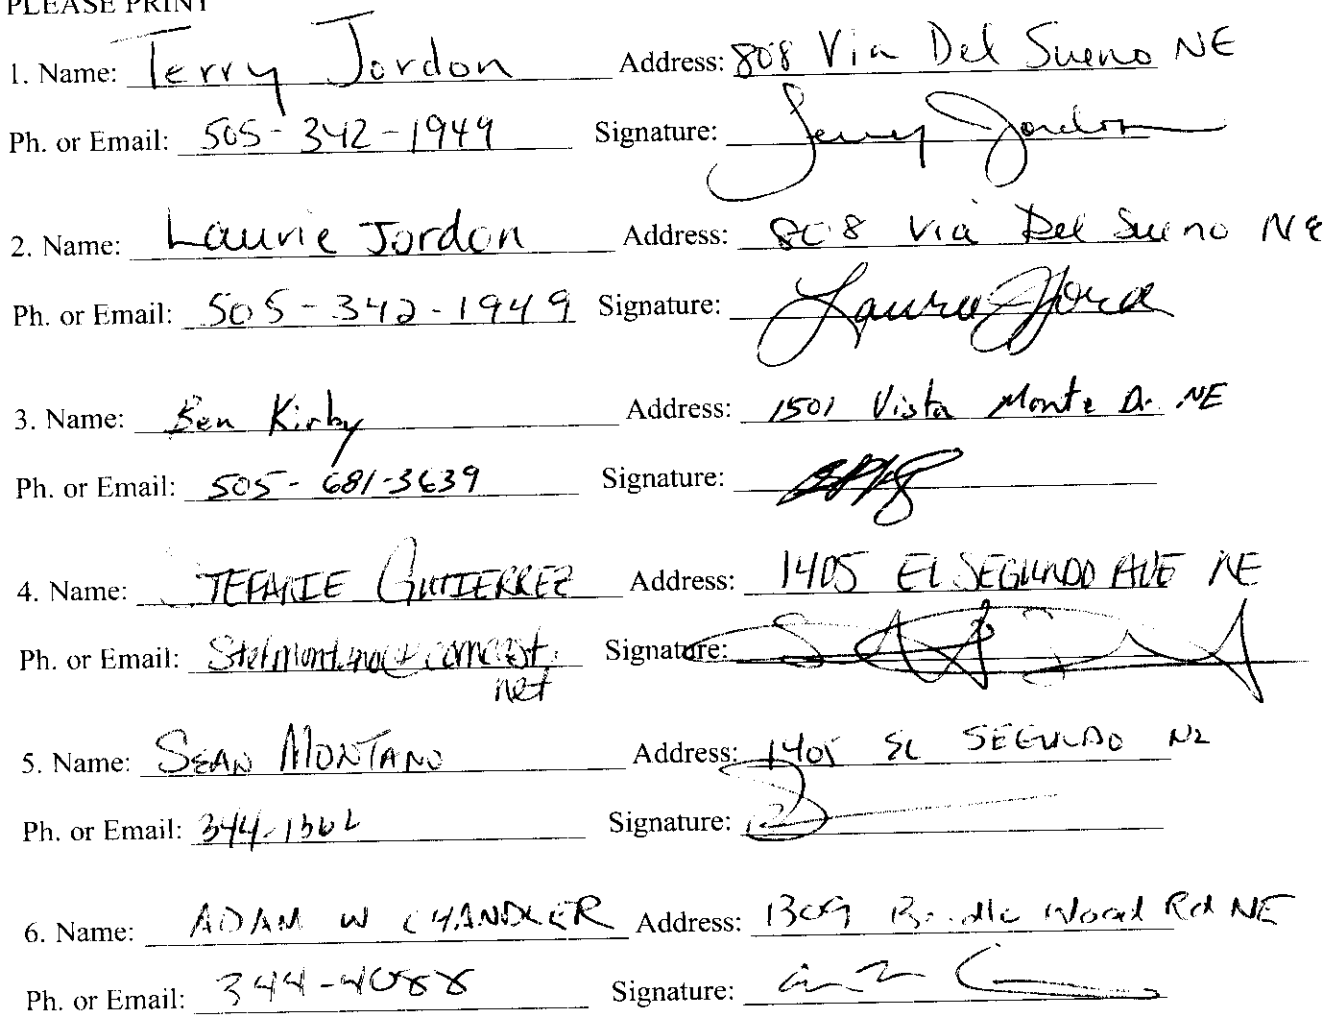 PLEASE PRINT
1. Name: Terry Jordon Address: 808 Via Del Sueno NE
Ph. or Email: 505-342-1949 Signature: Terry Jordon
2. Name: Laurie Jordon Address: 808 Via Del Sueno NE
Ph. or Email: 505-342-1949 Signature:
3. Name: Ben Kirby Address: 1501 Vista Monte Dr. NE
Ph. or Email: 505-681-3639 Signature:
4. Name: TEFANIE GUTIERREZ Address: 1405 EL SEGUNDO AVE NE
Ph. or Email: comcast. Signature:
net
5. Name: SEAN MONTANO Address: 1405 EL SEGUNDO NE
Ph. or Email: 344-1362 Signature:
6. Name: ADAM W CHANDLER Address: 1309 Bridle Wood Rd NE
Ph. or Email: 344-4088 Signature: